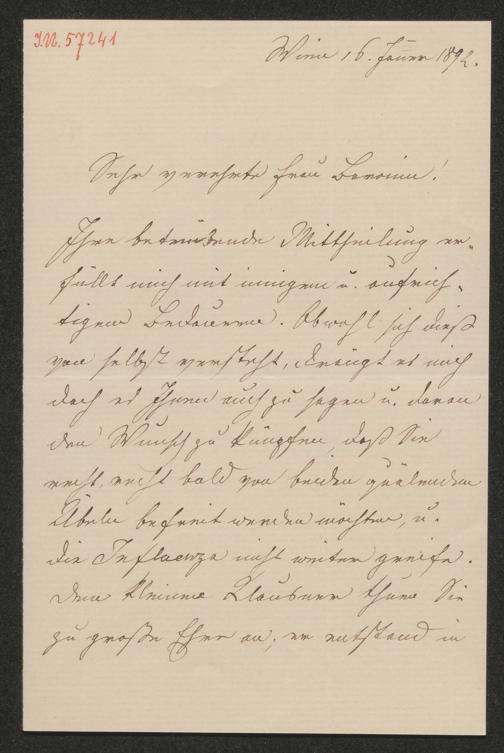 I.N. 57241
Wien 16. Jäner 1892.
Sehr verehrte Frau Baronin!
Ihre betrübende Mittheilung er-
füllt mich mit innigem u. aufrich-
tigem Bedauern. Obwohl sich dieß
von selbst versteht, drängt es mich
doch es Ihnen auch zu sagen u. daran
den Wunsch zu knüpfen, daß Sie
recht, recht bald von beiden quälenden
Übeln befreit werden möchten, u.
die Influenza nicht weiter greife.
Dem kleinen Klausner thun Sie
zu große Ehre an; er entstand in